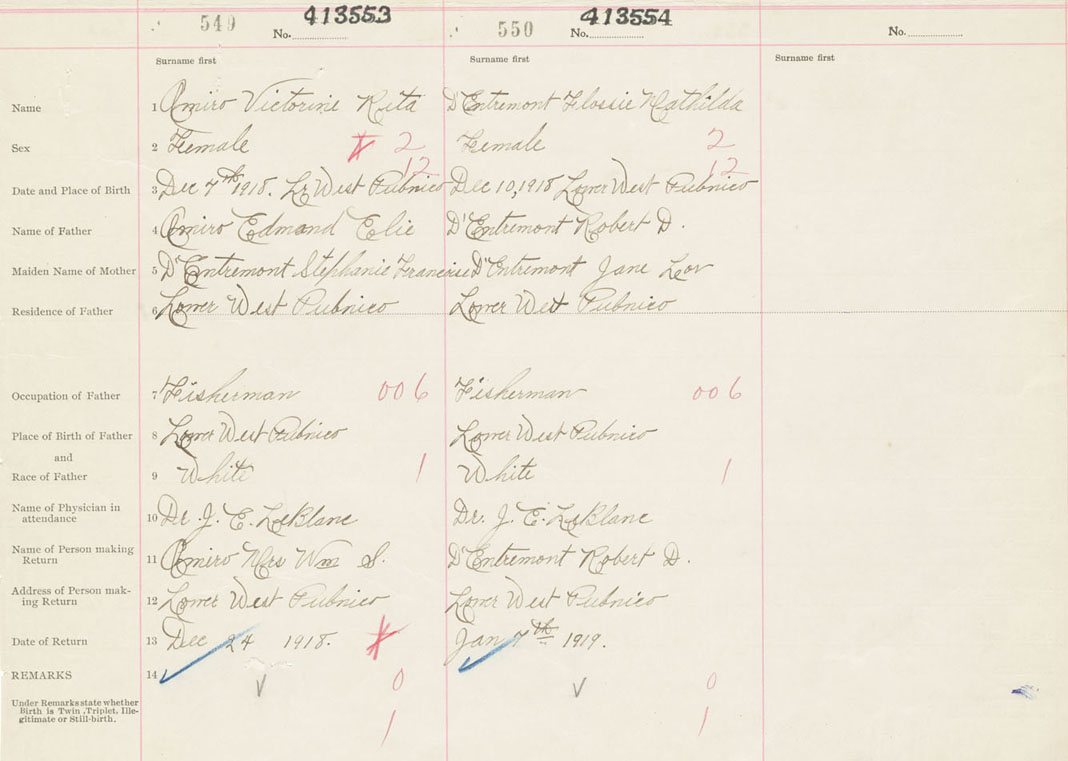 549 413553 550 413554
No. No. No.
Surname first Surname first Surname first
Name 1 Amiro Victorine Rita D'Entremont Flossie Mathilda
Sex 2 Female 2 Female 2
12 12
Date and Place of Birth 3 Dec 7th 1918. Lr West Pubnico Dec 10, 1918 Lower West Pubnico
Name of Father 4 Amiro Edmond Elie D'Entremont Robert D.
Maiden Name of Mother 5 D'Entremont Stephanie Francoise D'Entremont Jane
Residence of Father 6 Lower West Pubnico Lower West Pubnico
Occupation of Father 7 Fisherman 006 Fisherman 006
Place of Birth of Father 8 Lower West Pubnico Lower West Pubnico
and
Race of Father 9 White 1 White 1
Name of Physician in
attendance 10 Dr. J. E. LeBlanc Dr. J. E. LeBlanc
Name of Person making
Return 11 Amiro Mrs Wm S. D'Entremont Robert D.
Address of Person mak-
ing Return 12 Lower West Pubnico Lower West Pubnico
Date of Return 13 Dec 24 1918. Jan 7th 1919.
REMARKS 14 0 0
Under Remarks state whether
Birth is Twin, Triplet, Ille-
gitimate or Still-birth. 1 1